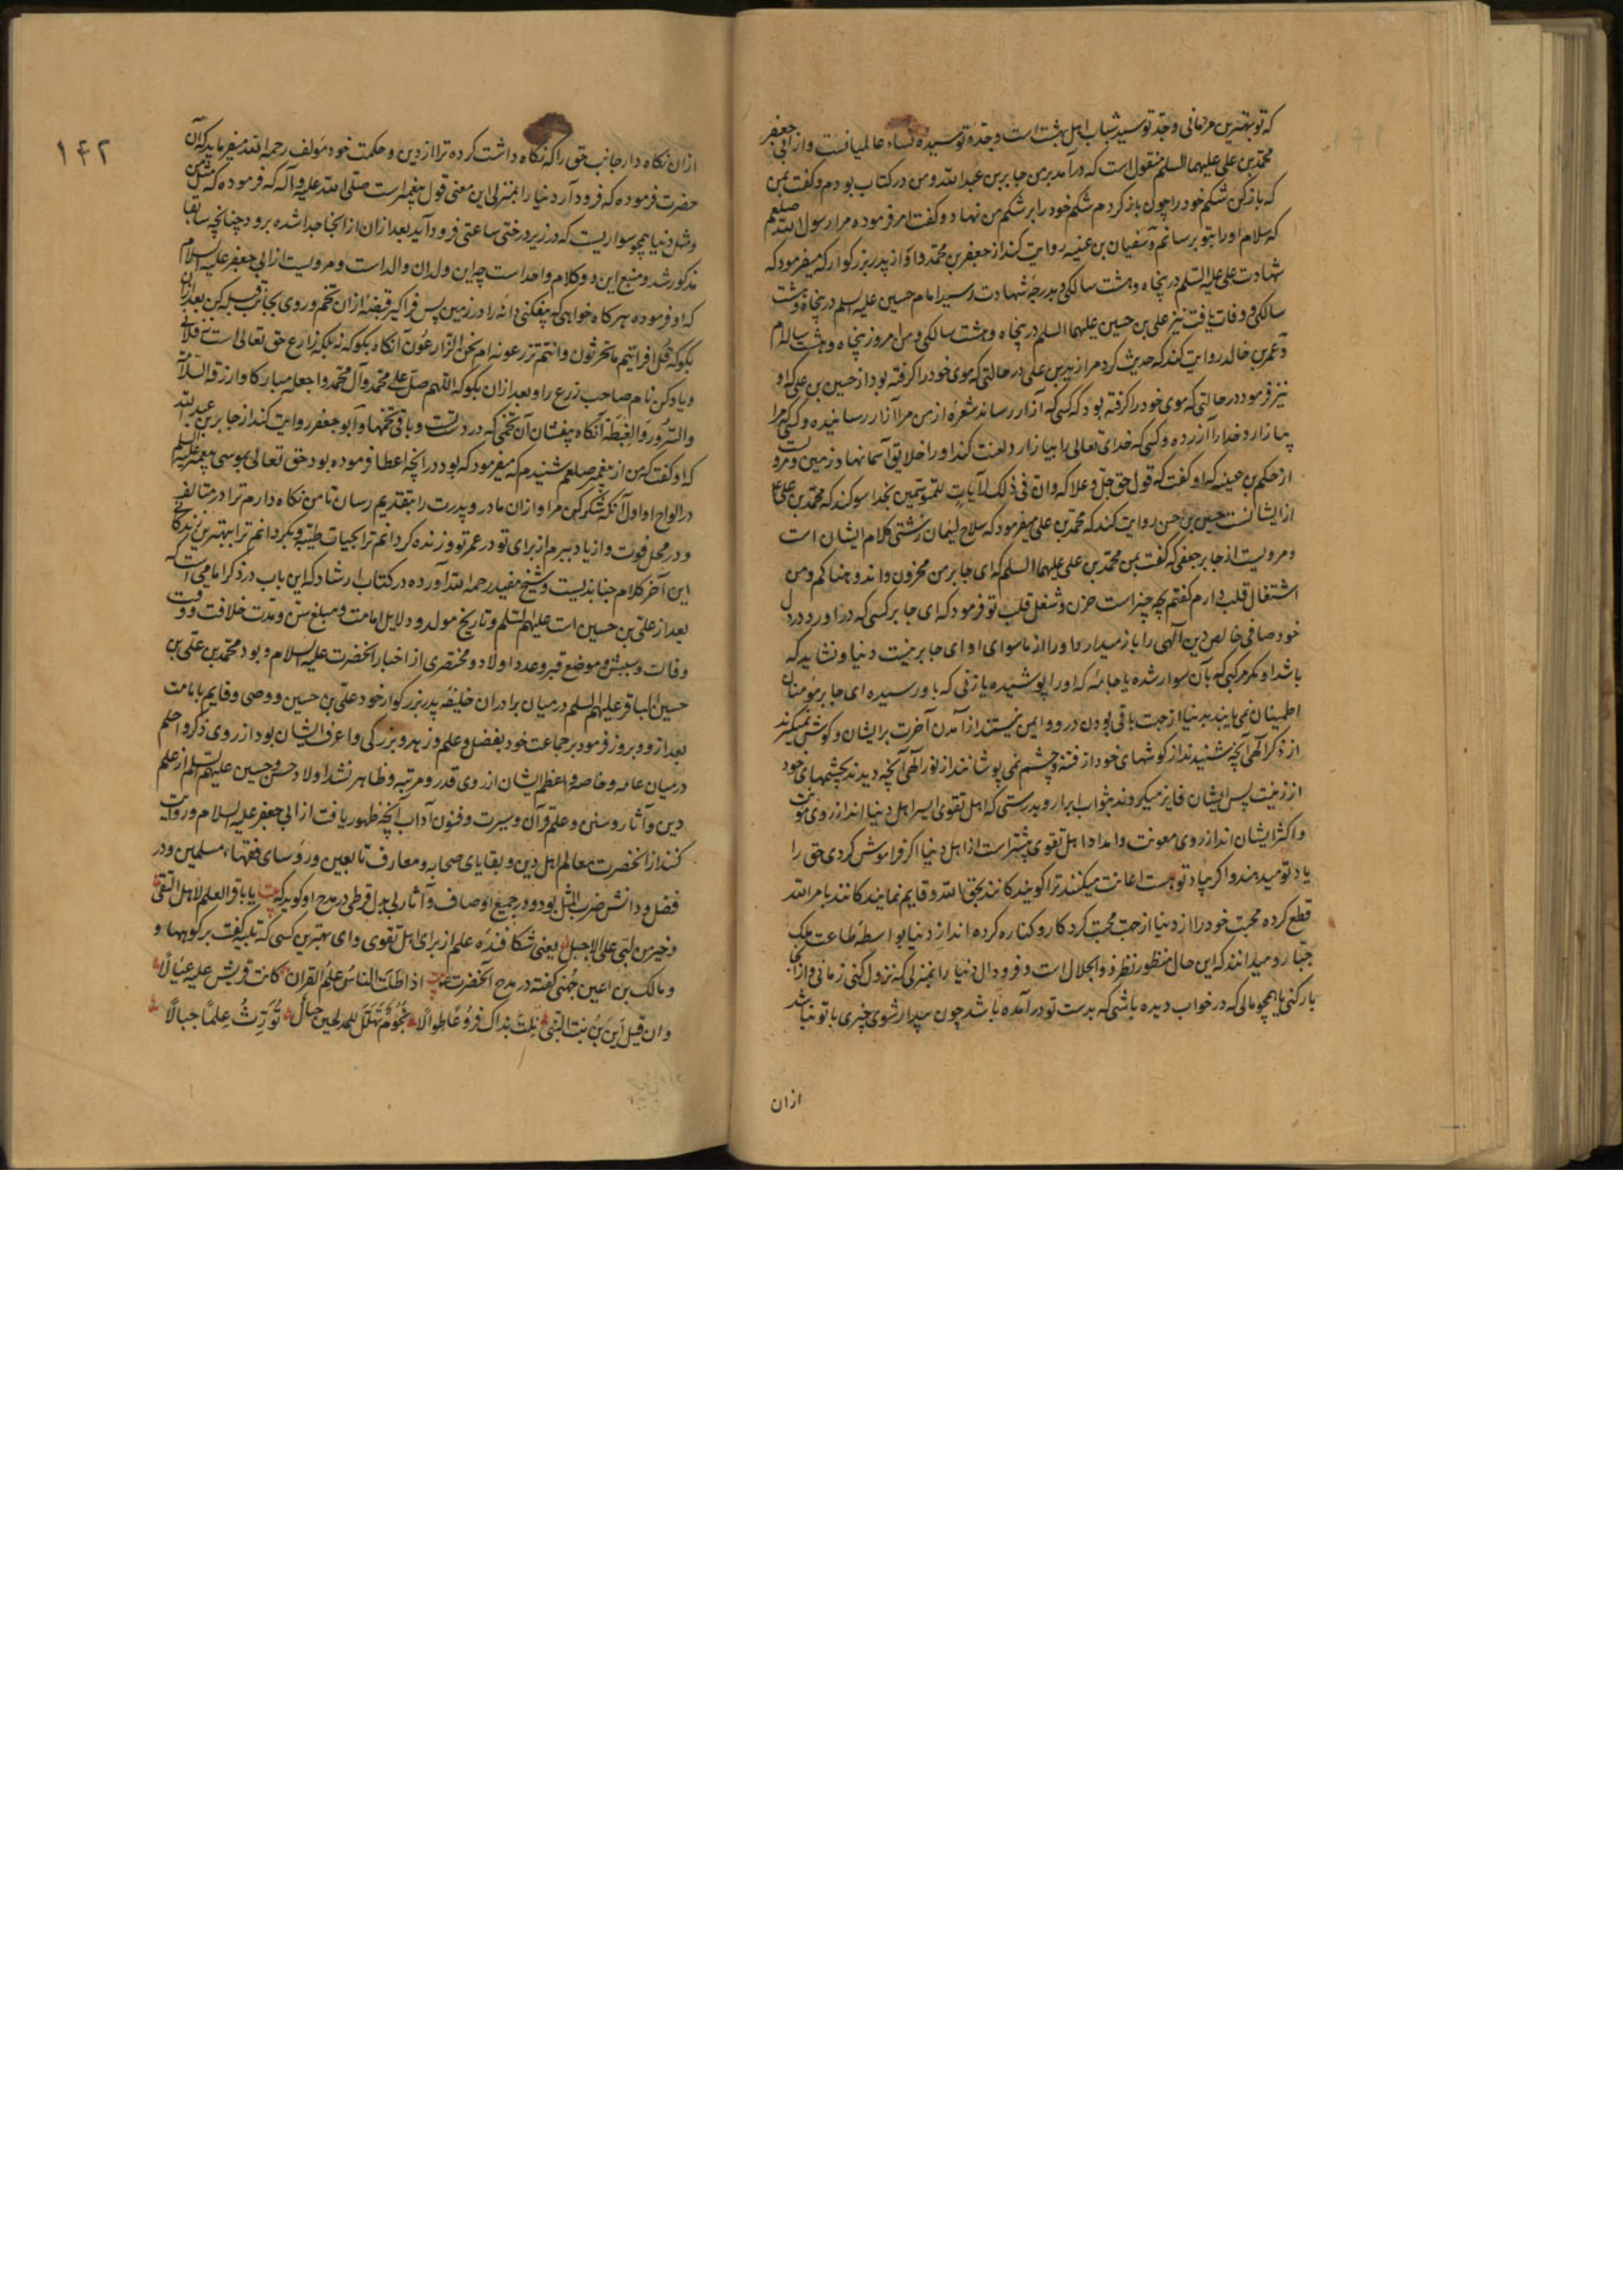 که تو بهترین مردمانی و جد تو سید شباب اهل بهشت است و جدهٔ تو سیده نساء عالمیانست و از ابی جعفر
محمد بن علی علیهما السلم منقول است که درآمد بر من جابر بن عبد الله و من در کتاب بودم و گفت بمن
که باز کن شکم خود را چون باز کردم شکم خود را بر شکم من نهاد و گفت امر فرموده مرا رسول الله صلعم
که سلام او را بتو برسانم و سفیان بن عیینه روایت کند از جعفر بن محمد و او از پدر بزرگوار که میفرمود که
شهادت علی علیه السلم در پنجاه و هشت سالکی و بدرجهٔ شهادت رسید امام حسین علیه السلم در پنجاه و هشت
سالکی و وفات یافت نیز علی بن حسین علیهما السلم در پنجاه و هشت سالکی و من امروز پنجاه و هشت ساله‌ام
و عمر بن خالد روایت کند که حدیث کرد مرا زید بن علی در حالتی که موی خود را کرفته بود از حسین بن علی که او
نیز فرمود در حالتی که موی خود را کرفته بود که کسی که آزار رساند شعرهٔ از من مرا آزار رسانیده و کسی که مرا
بیازارد خدا را آزرده و کسی که خدای تعالی را بیازارد لعنت کند او را خلایق آسمانها و زمین و مرویست
از حکم بن عیینه که او گفت که قول حق جل و علا که وان فی ذلک لآیات للمتوسمین بخدا سوکند که محمد بن علی ع
از ایشانست حسین بن حسن روایت کند که محمد بن علی میفرمود که سلاح لئیمان زشتی کلام ایشان است
و مرویست از جابر جعفی که گفت بمن محمد بن علی علیهما السلم که ای جابر من محزون و اندوهناکم و من
اشتغال قلب دارم گفتم بچه چیز است حزن و شغل قلب تو فرمود که ای جابر کسی که درآورد در دل
خود صافی خالص دین الهی را باز میدارد او را از ماسوای او ای جابر نیست دنیا و نشاید که
باشد او مگر مرکبی که بآن سوار شده یا جامهٔ که او را پوشیده یا زنی که باو رسیده ای جابر مؤمنان
اطمینان نمی یابند بدنیا از جهت باقی بودن در او و ایمن نیستند از آمدن آخرت بر ایشان و کوش نمیکیرند
از ذکر الهی آنچه شنیدند از کوشهای خود از فتنه و چشم نمی پوشانند از نور الهی آنچه دیدند بچشمهای خود
از زینت پس ایشان فایز میکردند بثواب ابرار و بدرستی که اهل تقوی ایسر اهل دنیا اند از روی مؤنت
و اکثر ایشان اند از روی معونت و امداد اهل تقوی بیشتر است از اهل دنیا اگر فراموش کردی حق را
یاد تو میدهند و اگر بیاد تو هست اعانت میکنند ترا کویندکانند بحق الله و قایم نمایندکانند بامر الله
قطع کرده محبت خود را از دنیا از جهت محبت کردکار و کناره کرده اند از دنیا بواسطهٔ طاعت ملک
جبار و میدانند که این حال منظور نظر ذو الجلال است و فرود آی دنیا را بمنزلی که نزول کنی زمانی و از آنجا
بار کنی یا همچو مالی که در خواب دیده باشی که بدست تو درآمده باشد چون بیدار شوی چیزی با تو نباشد
ازان
۱۴۲
ازان نکاه دار جانب حق را که نکاه داشت کرده ترا از دین و حکمت خود مؤلف رحمه الله میفرماید که آن
حضرت فرموده که فرود آر دنیا را بمنزلی این معنی قول پیغمبر است صلی الله علیه و آله که فرموده که مثل من
و مثل دنیا همچو سواریست که در زیر درختی ساعتی فرود آید بعد ازان از انجا جدا شده برود چنانچه سابقا
مذکور شد و منبع این دو کلام واحد است چه این ولد ازان والد است و مرویست از ابی جعفر علیه السلام
که او فرموده هر کاه خواهی که بیفکنی دانه را در زمین پس فرا کیر قبضهٔ ازان تخم و روی بجانب قبله کن بعد ازان
بکو که قل افرایتم ما تحرثون وانتم تزرعونه ام نحن الزارعون آنکاه بکو که نه بلکه زارع حق تعالی است نه فلانی
و یاد کن نام صاحب زرع را و بعد ازان بکو که اللهم صل علی محمد وآل محمد واجعله مبارکا وارزقه السلامة
والسرور والغبطة آنکاه بیفشان آن تخمی که در دست و باقی تخمها و ابو جعفر روایت کند از جابر بن عبد الله
که او گفت که من از پیغمبر صلعم شنیدم که میفرمود که بود در آنچه اعطا فرموده بود حق تعالی بموسی پیغمبر علیه السلم
در الواح او اول آنکه شکر کن مرا و ازان مادر و پدرت را بتقدیم رسان تا من نکاه دارم ترا در متالف
و در محل فوت و ازیاد ببرم از برای تو در عمر تو و زنده کردانم ترا بحیات طیبه و بکردانم ترا ببهترین زندکانی
این آخر کلام جنابذیست و شیخ مفید رحمه الله آورده در کتاب ارشاد که این باب در ذکر امامی است که
بعد از علی بن حسین است علیهم السلم و تاریخ مولد و دلایل امامت و مبلغ سن و مدت خلافت و وقت
وفات و سببش و موضع قبر و عدد اولاد و مختصری از اخبار آنحضرت علیه السلام و بود محمد بن علی بن
حسین الباقر علیهم السلم در میان برادران خلیفه پدر بزرکوار خود علی بن حسین و وصی و قایم بامامت
بعد از او و بروز فرمود بر جماعت خود بفضل و علم و زهد و بزرکی و اعرف ایشان بود از روی ذکر و احلم
در میان عامه و خاصه و اعظم ایشان از روی قدر و مرتبه و ظاهر نشد از اولاد حسن و حسین علیهم السلم از علم
دین و آثار و سنن و علم قرآن و سیرت و فنون آداب آنچه ظهور یافت از ابی جعفر علیه السلام و روایت
کنند از آنحضرت معالم اهل دین و بقایای صحابه و معارف تابعین و رؤسای فقهاء مسلمین و در
فضل و دانش ضرب المثل بود و در جمیع اوصاف و آثار بی بدل قرطی در مدح او کوید که یا باقر العلم لاهل التقی
وخیر من لبی علی الاجبل یعنی شکافندهٔ علم از برای اهل تقوی و ای بهترین کسی که تلبیه کفت بر کوهها و
و مالک بن اعین جهنی کفته در مدح آنحضرت اذا طلب الناس علم القران کانت قریش علیه عیالا
وان قیل این بن بنت النبی نلت بذاک فروعا طوالا نجوم تهلل للمدلجین جبال تورث علما جبالا